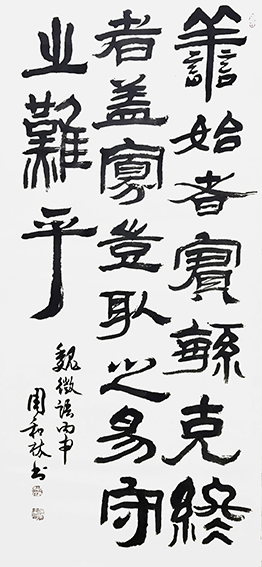 譱始者實緐克終
者蓋寡豈取之易守
之難乎
魏徵語丙申
周林书